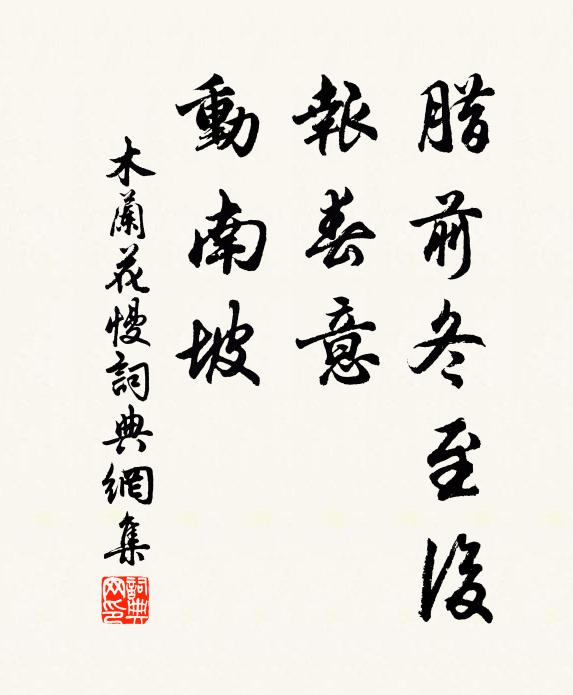 腊前冬至後
報春意
動南坡
木蘭花慢詞典網集
詞典网印